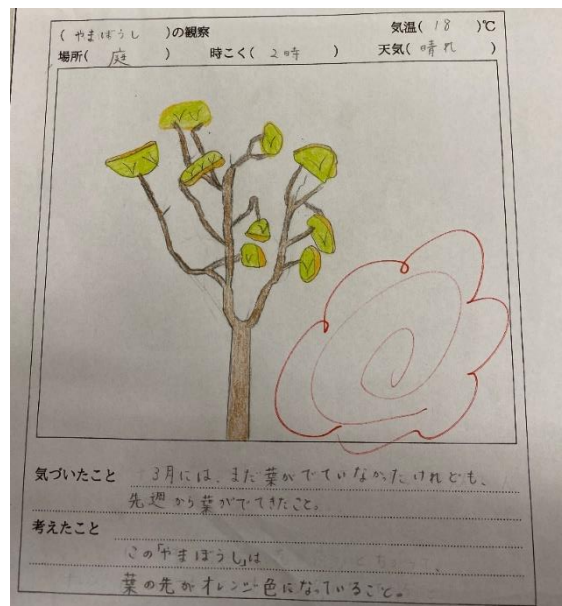 (やまぼうし)の観察 気温(18)℃
場所(庭) 時こく(2時) 天気(晴れ)
気づいたこと 3月には、まだ葉がでていなかったけれども、
先週から葉がでてきたこと。
考えたこと
この「やまぼうし」は
葉の先がオレンジ色になっていること。